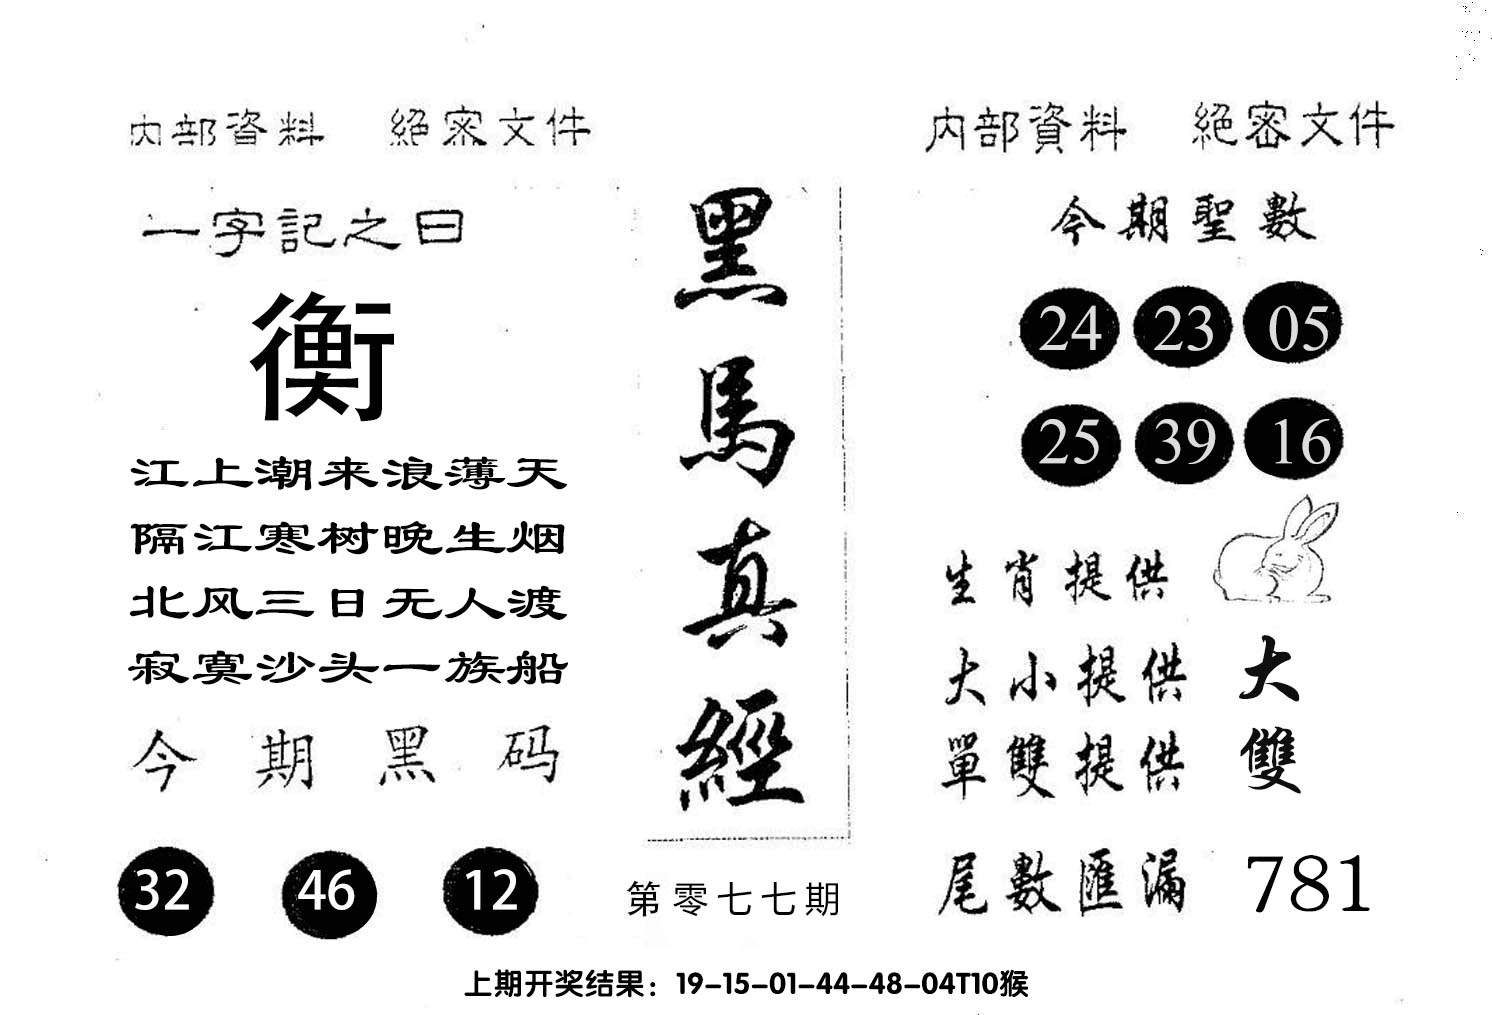 内部資料 絕密文件
一字記之曰
衡
江上潮来浪薄天
隔江寒树晚生烟
北风三日无人渡
寂寞沙头一族船
今期黑码
32 46 12
黑馬真經
第零七七期
内部資料 絕密文件
今期聖數
24 23 05
25 39 16
生肖提供
大小提供 大
單雙提供 雙
尾數匯漏 781
上期开奖结果：19-15-01-44-48-04T10猴